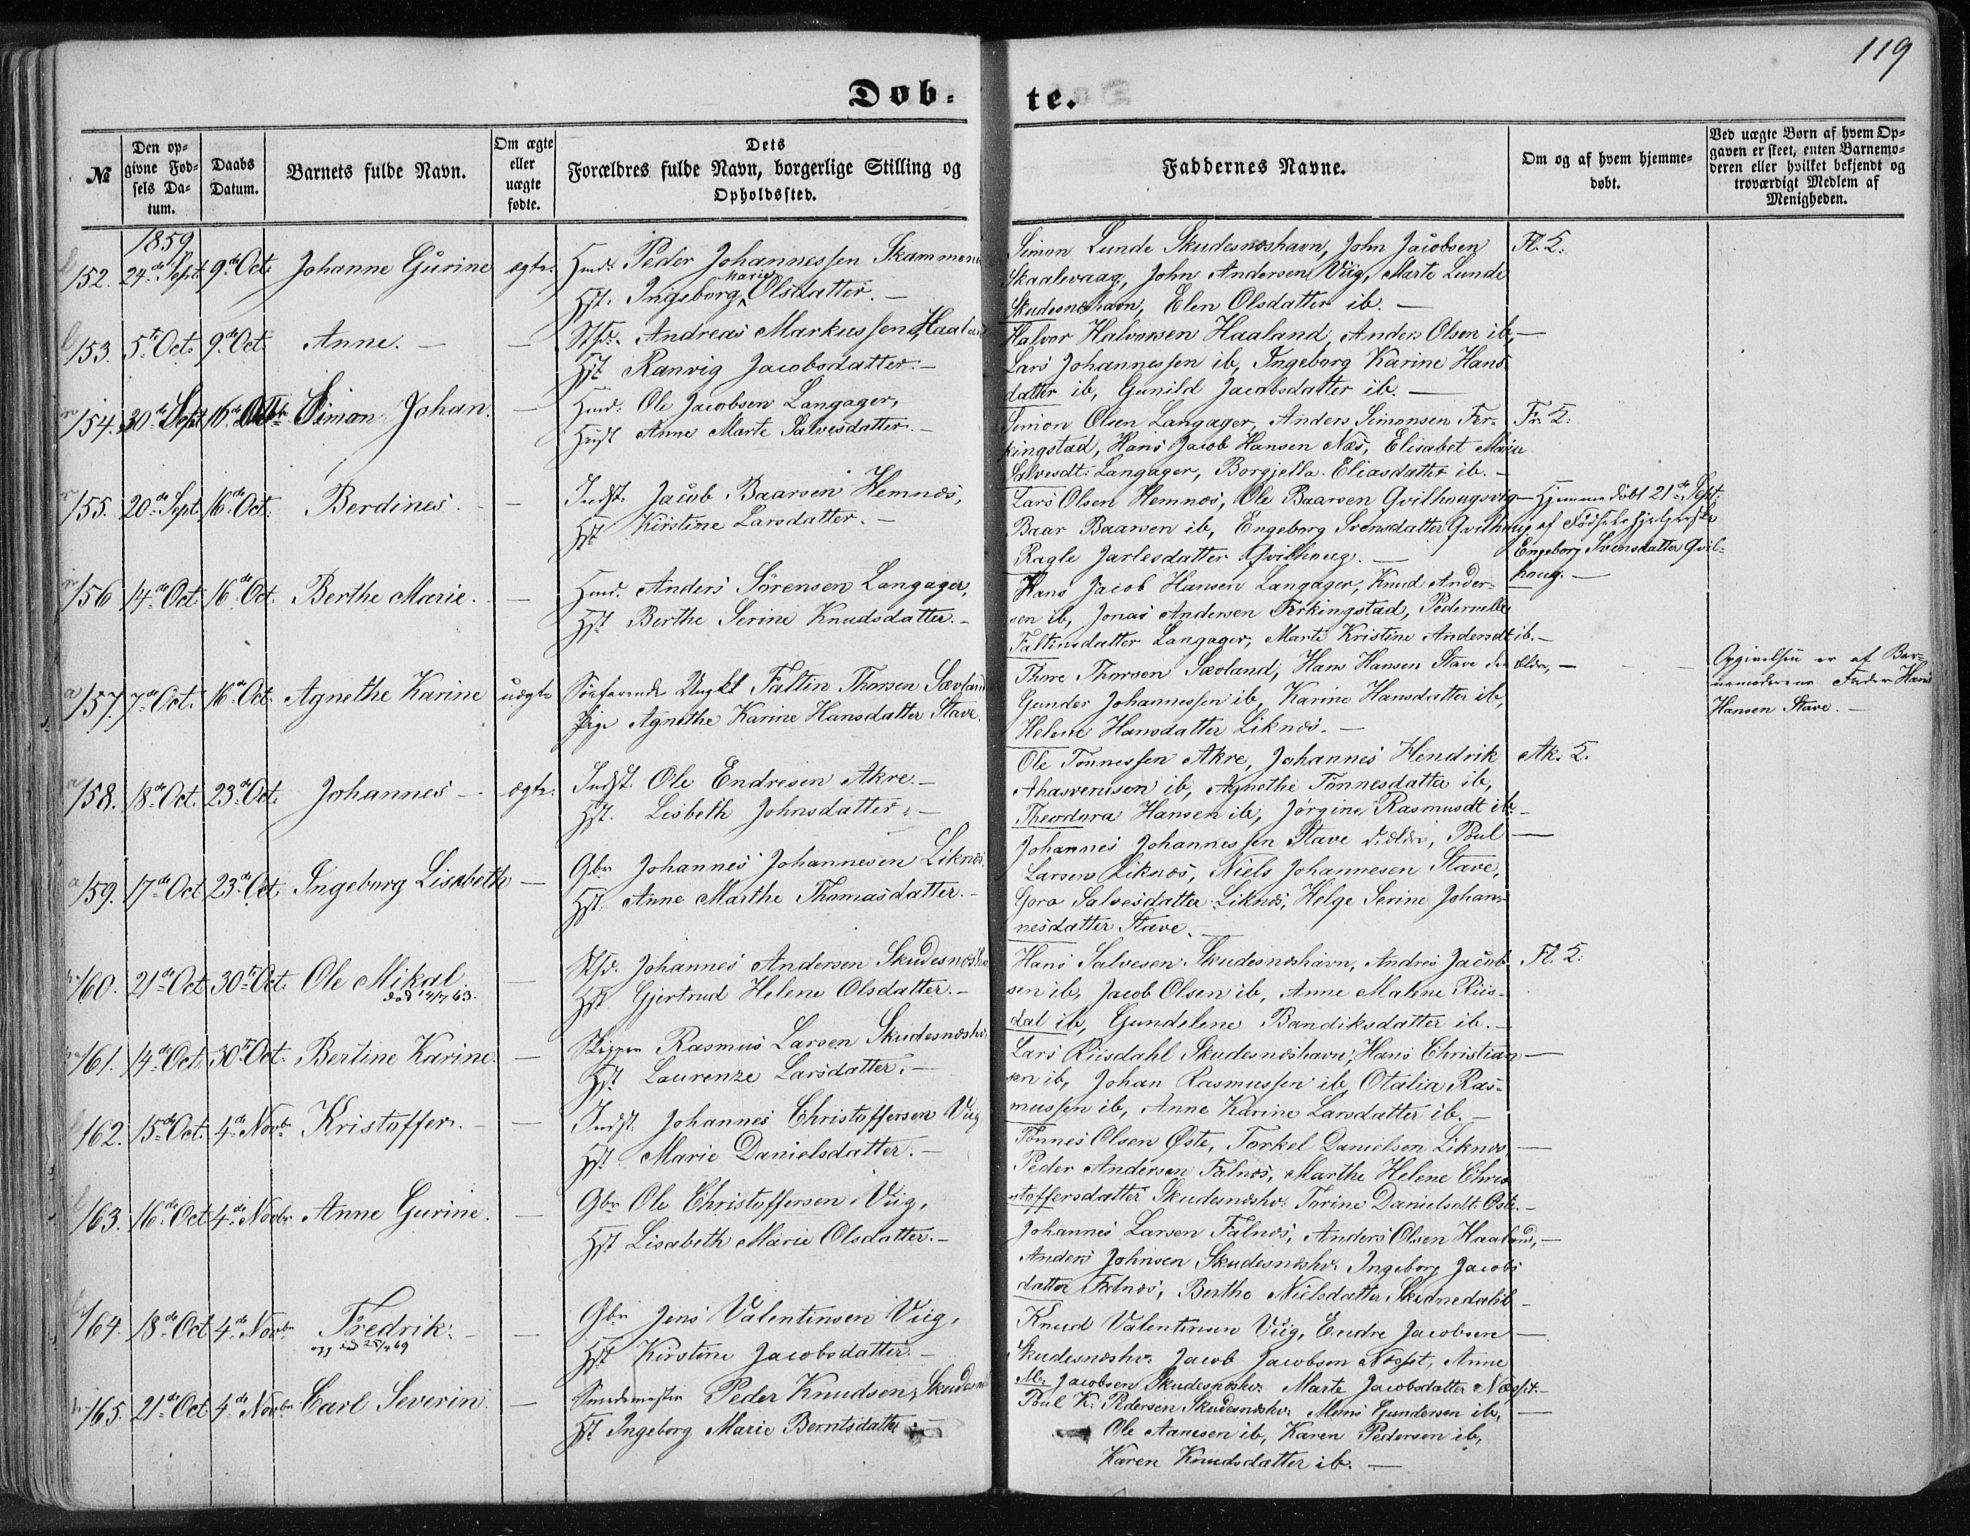 119
Døb- te.
№
Den op-
givne Fød-
sels Da-
tum.
Daabs
Datum.
Barnets fulde Navn.
Om ægte
eller
uægte
fødte.
Dets
Forældres fulde Navn, borgerlige Stilling og
Opholdssted.
Faddernes Navne.
Om og af hvem hjemme-
døbt.
Ved uægte Børn af hvem Op-
gaven er skeet, enten Barnemo-
deren eller hvilket bekjendt og
troværdigt Medlem af
Menigheden.
1859
152. 24de Sept. 9de Oct. Johanne Gurine ægte. Hmd. Peder Johannessen
Marie
Hst. Ingeborg Olsdatter. —
Simon Lunde Skudesnæshavn, John Jacobsen
Skaalevaag, John Andersen Viig, Marte Lunde
Skudesnæshavn, Elen Olsdatter ib. —
Fl. 5.
153. 5te Oct. 9de Oct. Anne. — — Andreas Markussen Haaland
Hst. Ranvig Jacobsdatter. —
Halvor Halvorsen Haaland, Anders Olsen ib, —
Lars Johannessen ib, Ingeborg Karine Hans-
datter ib, Gunild Jacobsdatter ib. —
154. 30de Sept. 16de Octbr Simon Johan. — Hmd. Ole Jacobsen Langager,
Hust. Anne Marte Salvesdatter. —
Simon Olsen Langager, Anders Simonsen Fer-
kingstad, Hans Jacob Hansen Næs, Elisabet Marie
Salvesdt. Langager, Borgjella Eliasdatter ib. —
Fr. 5.
155. 20de Sept. 16de Oct. Berdines. — Indst. Jacob Baarsen Hemnæs,
Hst. Kirstine Larsdatter. —
Lars Olsen Hemnæs, Ole Baarsen Qvilhougsvig —
Baar Baarsen ib, Engeborg Svensdatter Qvilhoug,
Ragle Jarlesdatter Qvilhoug. —
Hjemmedøbt 21de Sept.
af Fødselshjelpersk
Engeborg Svensdatter Qvil-
houg. —
156 14de Oct. 16de Oct. Berthe Marie. — Hmd. Anders Sørensen Langager,
Hst. Berthe Serine Knudsdatter. —
Hans Jacob Hansen Langager, Knud Ander-
sen ib, Jonas Andersen Ferkingstad, Pedernelle
Faltinsdatter Langager, Marte Kristine Andersdt ib. —
157. 7de Oct. 16de Oct. Agnethe Karine uægte Søefarende Ungkl Faltin Thorsen Sævland
Pige Agnethe Karine Hansdatter Stave.
Thore Thorsen Sævland, Hans Hansen Stave den ældre, —
Gunder Johannessen ib, Karine Hansdatter ib,
Helene Hansdatter Liknæs. —
Opgivelsen er af Bar-
nemoderens Fader Hans
Hansen Stave. —
158. 18de Oct. 23de Oct. Johannes — ægte. Indst. Ole Endresen Akre. —
Hst. Lisbeth Johnsdatter. —
Ole Tønnessen Akre, Johannes Hendrik
Ahasverusen ib, Agnethe Tønnesdatter ib,
Theodora Hansen ib, Jørgine Rasmusdt ib. —
Ak. 5.
159. 17de Oct. 23de Oct. Ingeborg Lisabeth — Gbr Johannes Johannesen Liknæs
Hst. Anne Marthe Thomasdatter. —
Johannes Johannessen Stave d: ældre, Poul —
Larsen Liknæs, Niels Johannesen Stave,
Goro Salvesdatter Liknæs, Helge Serine Johan-
nesdatter Stave. —
160. 21de Oct. 30te Oct. Ole Mikal. — Johannes Andersen
død 14/7 63.
Hst. Gjertrud Helene Olsdatter. —
Hans Salvesen Skudesnæshavn, Andreas Jacob-
sen ib, Jacob Olsen ib, Anne Malene Riis-
dal ib, Gundelene Bandiksdatter ib. —
Fl. 5.
161. 14de Oct. 30te Oct. Bertine Karine. — Skipper Rasmus Larsen Skudesnæshv.
Hst. Laurenze Larsdatter. —
Lars Riisdahl Skudesnæshavn, Hans Christian- —
sen ib, Johan Rasmussen ib, Otalia Ras-
mussen ib, Anne Karine Larsdatter ib. —
162. 15de Oct. 4de Novbr Kristoffer. — — Indst. Johannes Christoffersen Viig
Hst. Marie Danielsdatter. —
Tønnes Olsen Øste, Torkel Danielsen Liknæs —
Peder Andersen Falnæs, Marthe Helene Chri-
stoffersdatter Skudesnæshv. Torine Danielsdt. Øste. —
163. 16de Oct. 4de Novbr. Anne Gurine. — Gbr Ole Christoffersen Viig,
Hst. Lisabeth Marie Olsdatter. —
Johannes Larsen Falnæs, Anders Olsen Haaland, —
Anders Johnsen Skudesnæshv. Ingeborg Jacobs
datter Falnæs, Berthe Nielsdatter —
164. 18de Oct. 4de Novbr. Fredrik. — — Gbr Jens Valentinsen Viig,
Hst. Kirstine Jacobsdatter. —
Knud Valentinsen Viig, Endre Jacobsen —
Skudesnæshv. Jacob Jacobsen Næsset, Anne
M. Jacobsen Skudesnæshv. Marte Jacobsdatter Næsset. —
165. 21de Oct. 4de Novbr. Carl Severin — Smedemester Peder Knudsen,
Hst. Ingeborg Marie Berntsdatter
Poul K. Pedersen Skudesnæshv. Mons Gundersen ib, —
Ole Aamesen ib, Karen Pedersen ib,
Karen Knudsdatter ib. —